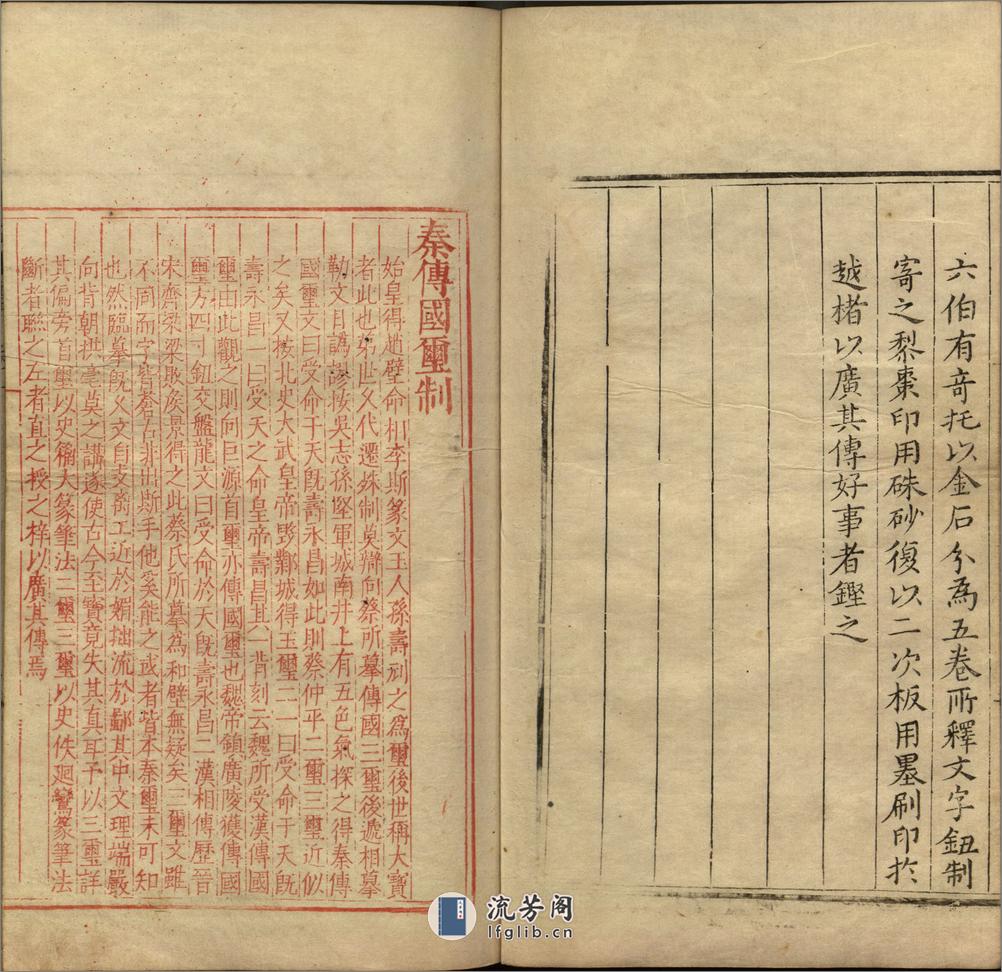 六伯有竒托以金石分為五卷所釋文字鈕制
寄之梨棗印用硃砂復以二次板用墨刷印於
越楮以廣其傳好事者鑒之
秦傳國璽制
始皇得趙璧命相李斯篆文玉人孫壽刻之為璽後世稱大寳
者此也第世久代遷銖制莫辯向蔡所摹傳國三璽後遞相摹
勒文目譌謬按吳志孫堅軍城南井上有五色氣探之得秦傳
國璽文曰受命于天旣壽永昌如此則蔡仲平二璽三璽近似
之矣又按北史大武皇帝毀鄴城得玉璽二一曰受命于天旣
壽永昌一曰受天之命皇帝壽昌其一背刻云魏所受漢傳國
璽由此觀之則向巨源首璽亦傳國璽也魏帝鎮廣陵獲傳國
璽方四寸鈕交盤龍文曰受命於天旣壽永昌二漢相傳歷晉
宋齊梁梁敗侯景得之此蔡氏所摹為和璧無疑矣三璽文雖
不同而字皆蒼古非出斯手他奚能之或者皆本秦璽未可知
也然臨摹旣久文自支离工近於媚拙流於鄙其中文理端嚴
向背朝拱毫莫之講遂使古今至寳竟失其真耳予以三璽詳
其偏旁首璽以史籕大篆筆法二璽三璽以史佚廻鸞篆筆法
斷者聯之左者直之授之梓以廣其傳焉
流芳阁
lfglib.cn